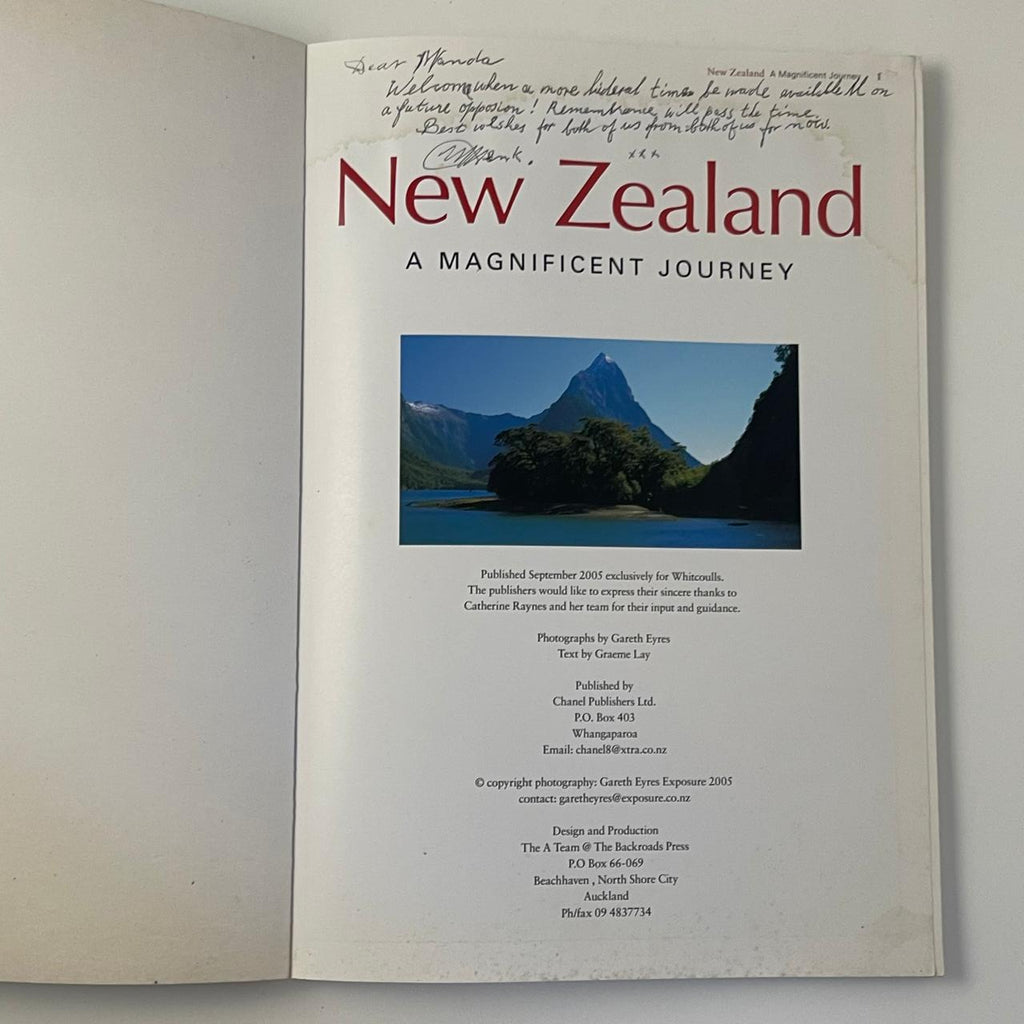 Dear Wanda
New Zealand A Magnificent Journey 1
Welcome when a more liberal times be made available on
a future opposion! Remembrance will pass the time.
Best wishes for both of us from both of us for now.
Henk. xxx
New Zealand
A MAGNIFICENT JOURNEY
Published September 2005 exclusively for Whitcoulls.
The publishers would like to express their sincere thanks to
Catherine Raynes and her team for their input and guidance.
Photographs by Gareth Eyres
Text by Graeme Lay
Published by
Chanel Publishers Ltd.
P.O. Box 403
Whangaparoa
Email: chanel8@xtra.co.nz
© copyright photography: Gareth Eyres Exposure 2005
contact: garetheyres@exposure.co.nz
Design and Production
The A Team @ The Backroads Press
P.O Box 66-069
Beachhaven , North Shore City
Auckland
Ph/fax 09 4837734